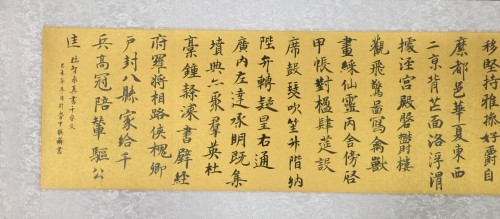 移堅持雅操好爵自
縻都邑華夏東西
二京背芒面洛浮渭
據涇宮殿磐鬱樓
觀飛驚啚寫禽獸
畫綵仙靈丙舍傍啓
甲帳對楹肆筵設
席鼓瑟吹笙升階納
陛弁轉疑星右通
廣內左達承明既集
墳典亦聚群英杜
稾鍾隸漆書壁經
府羅將相路俠槐卿
戶封八縣家給千
兵高冠陪輦驅公
佳
臨智永真書千字文